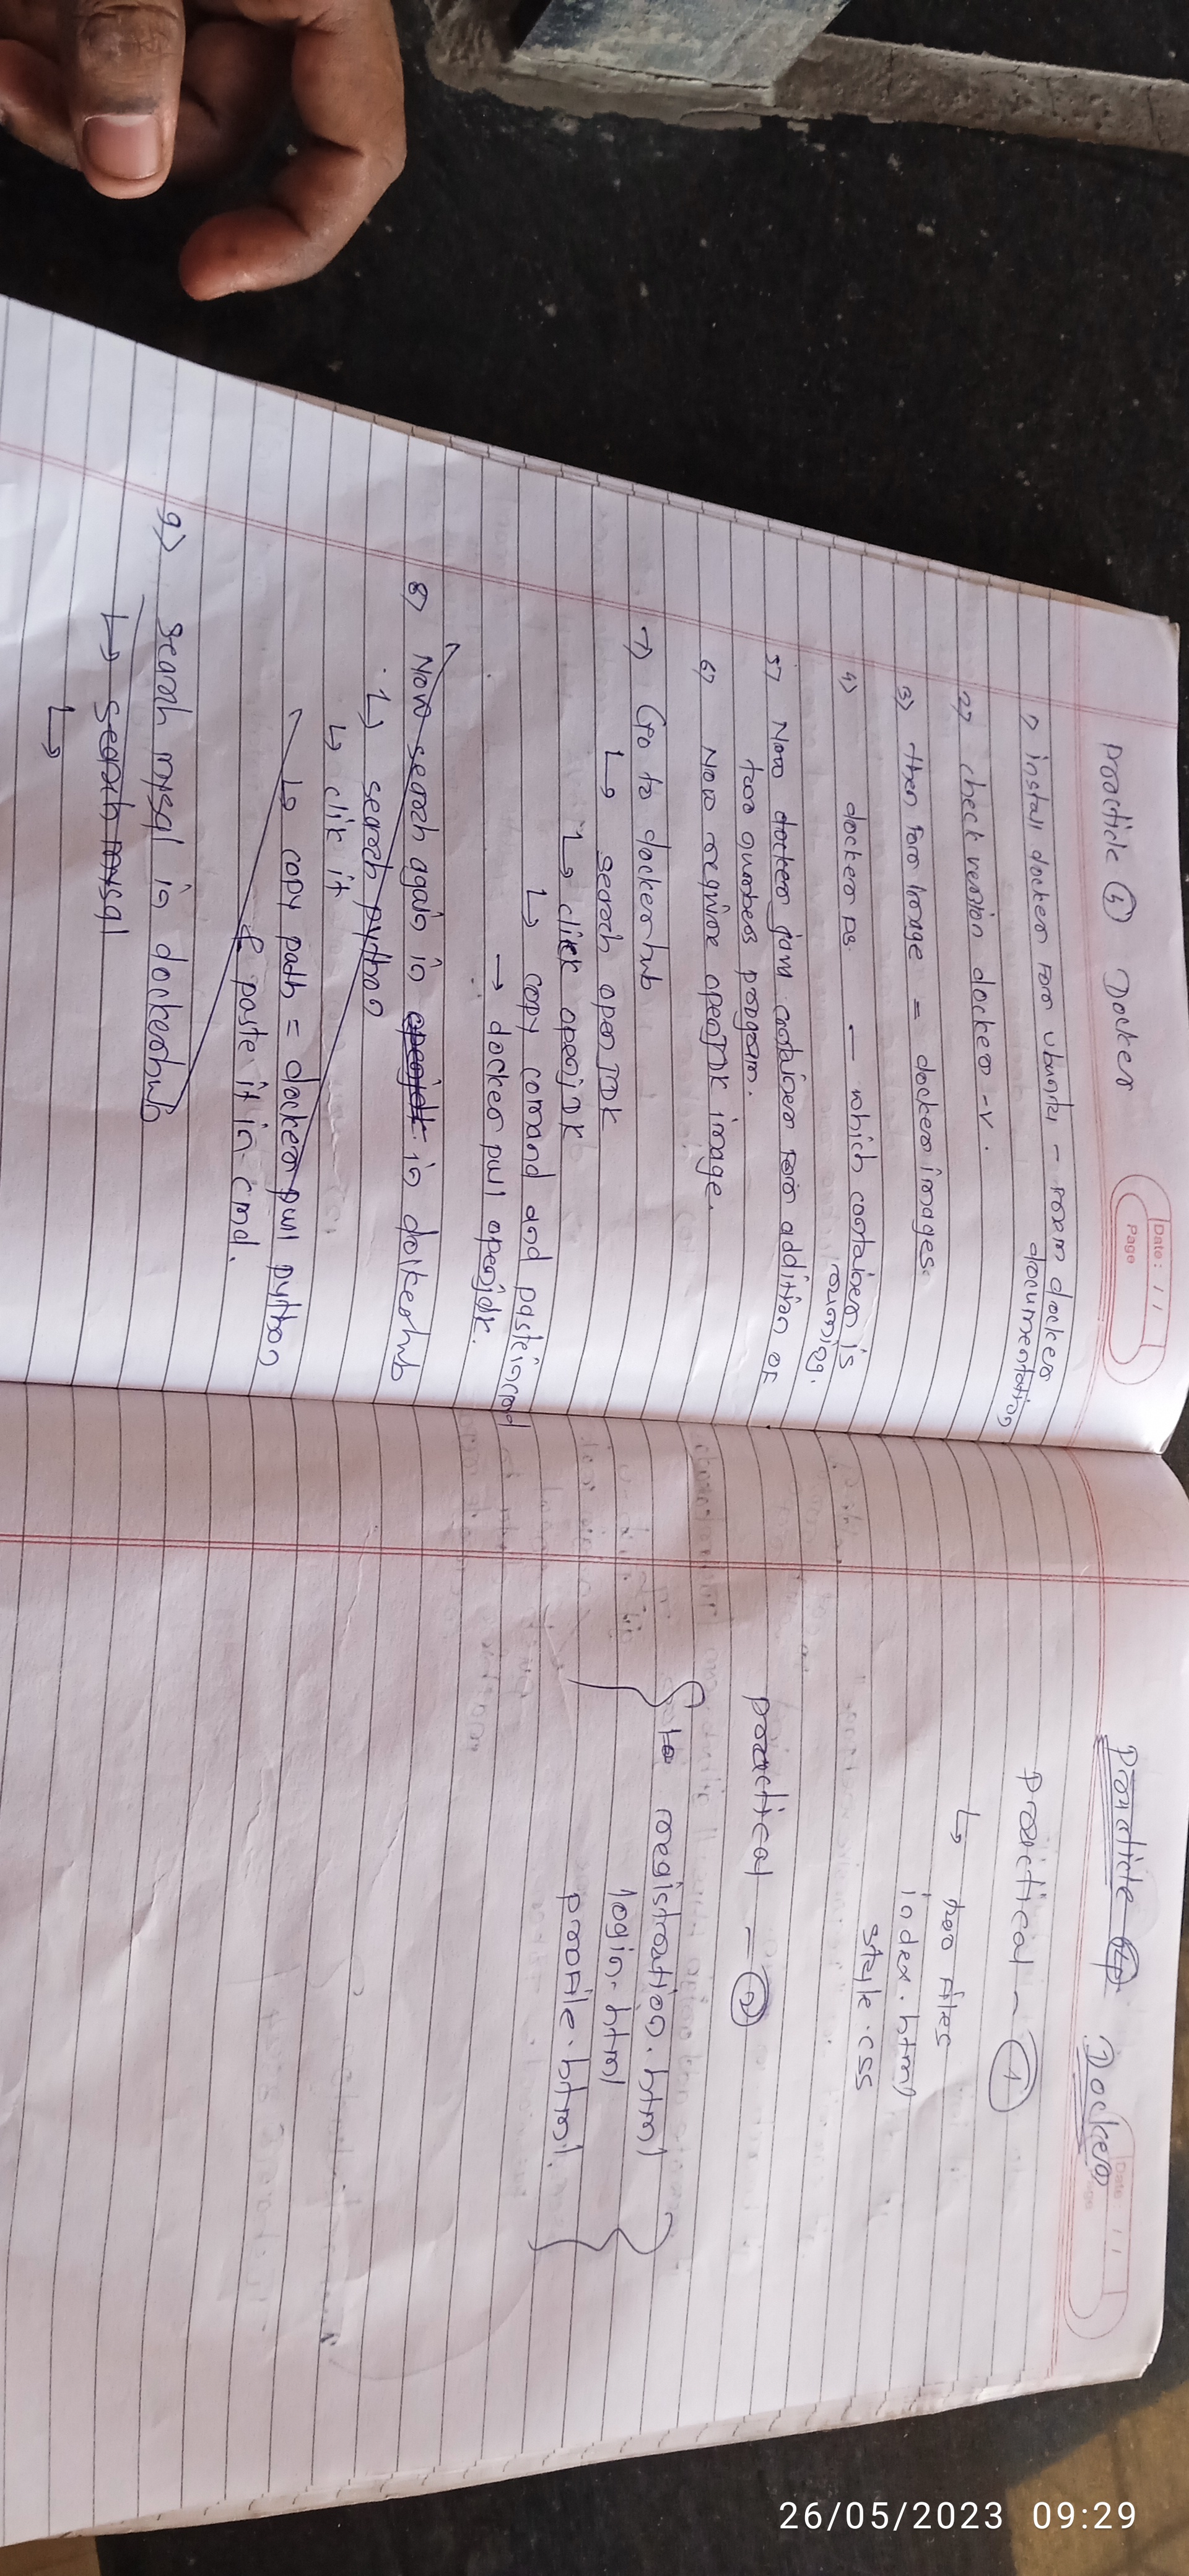 Practicle 5 Docker
Date: / /
Page
1) install docker for ubuntu - from docker
documentation
2) check version docker -v.
3) then for image = docker images
4) docker ps. — which container is
running.
5) Now docker java container for addition of
two numbers program.
6) Now require openJDK image.
7) Go to dockerhub
↳ search openJDK
↳ click openJDK
↳ copy command and paste in cmd
→ docker pull openjdk.
8) Now search again in openjdk in dockerhub
↳ search python
↳ clik it
↳ copy path = docker pull python
& paste it in cmd.
9) search mysql in dockerhub
↳ search mysql
↳
Practicle Docker
Date / /
practical - 1
↳ two files
index.html
style.css
practical - 2
registration.html
login.html
profile.html
26/05/2023 09:29